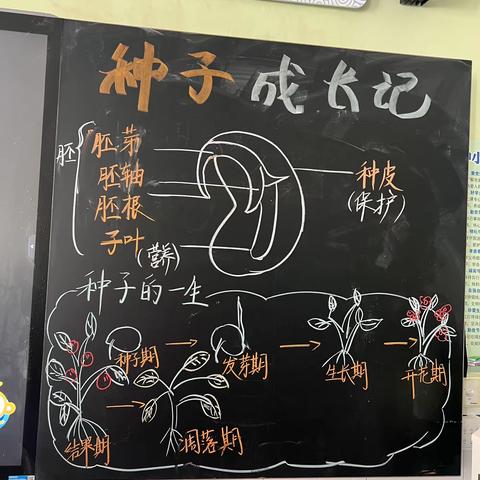 种子成长记
胚
胚芽
胚轴
胚根
子叶(营养)
种皮
(保护)
种子的一生
种子期
发芽期
生长期
开花期
结果期
凋落期